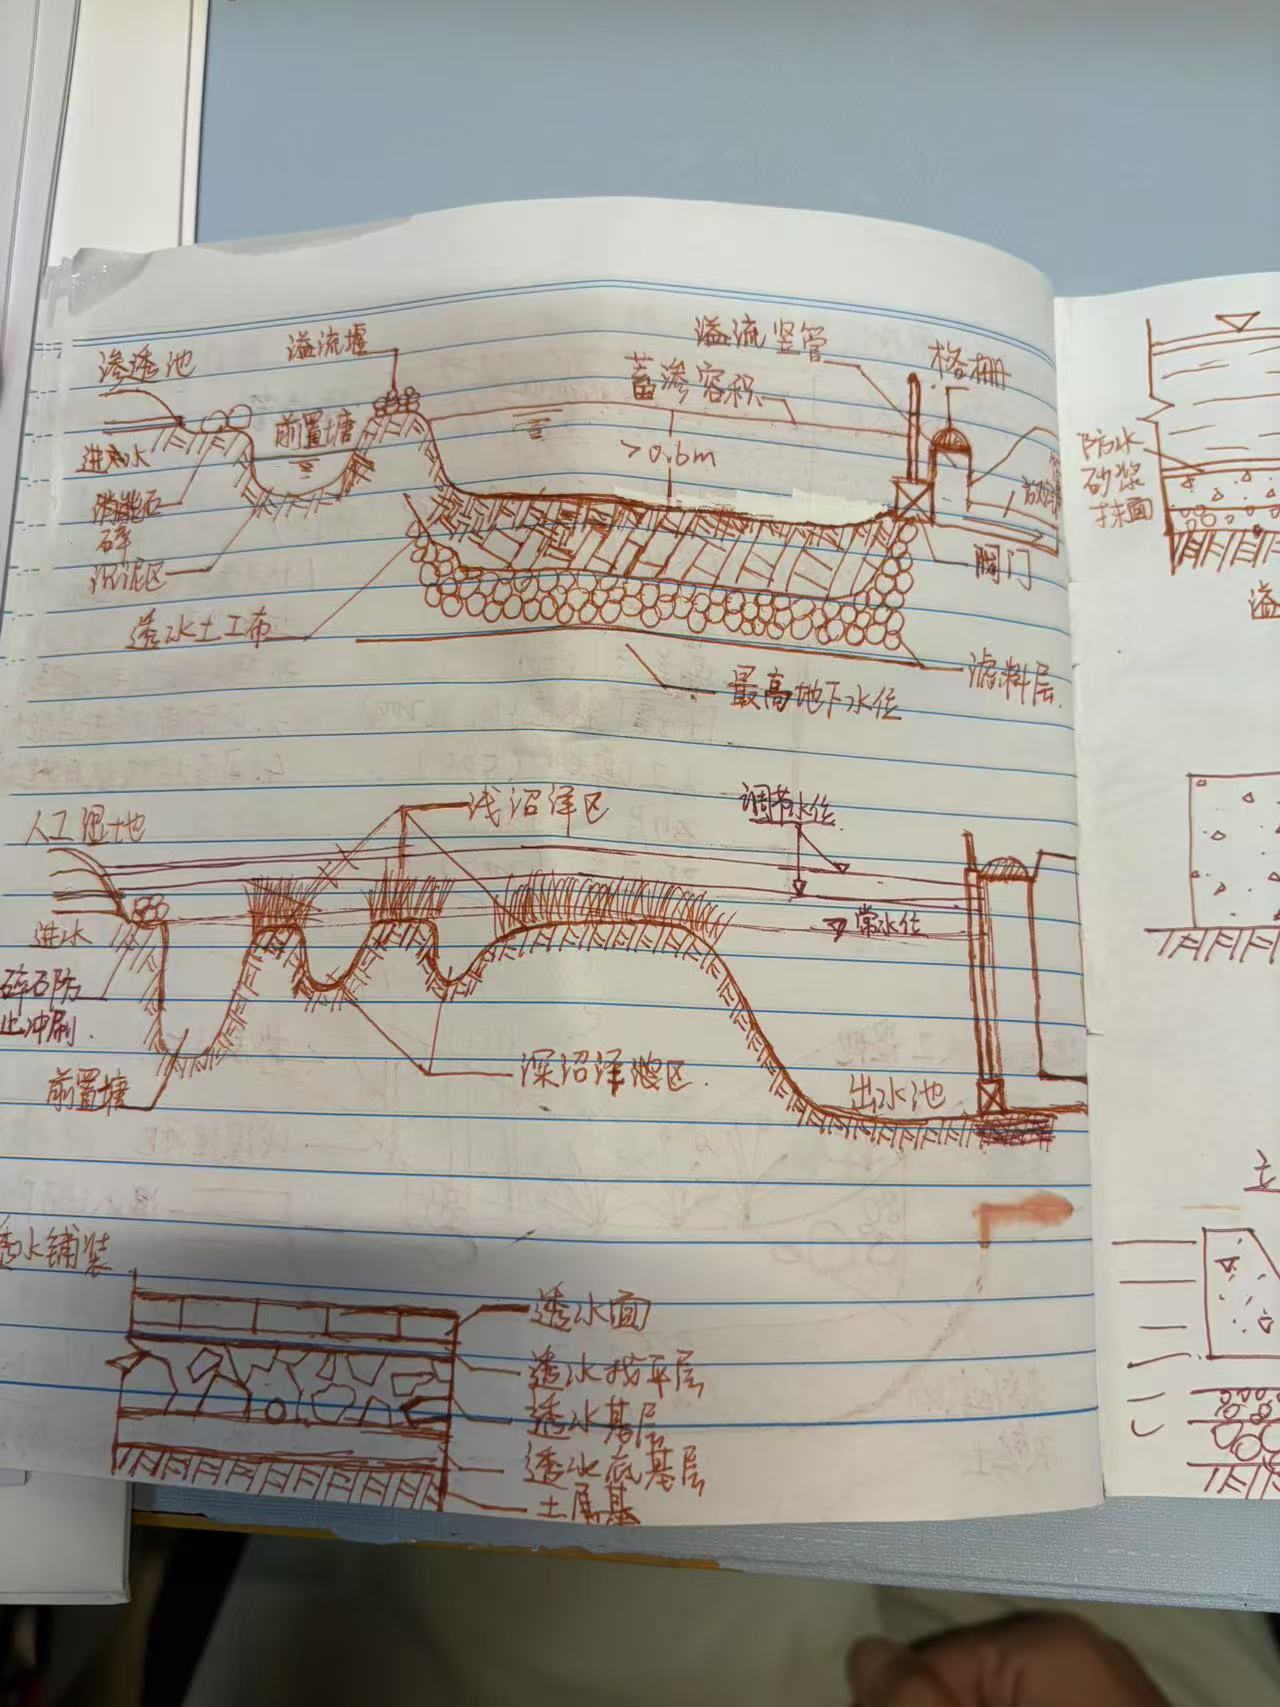 渗透池
溢流堰
溢流竖管
蓄渗容积
格栅
前置塘
>0.6m
进水
消能石
碎
沉泥区
阀门
透水土工布
滤料层
最高地下水位
人工湿地
浅沼泽区
调节水位
常水位
进水
碎石防
止冲刷
前置塘
深沼泽区
出水池
透水铺装
透水面
透水找平层
透水基层
透水底基层
土基
防水
砂浆
抹面
溢